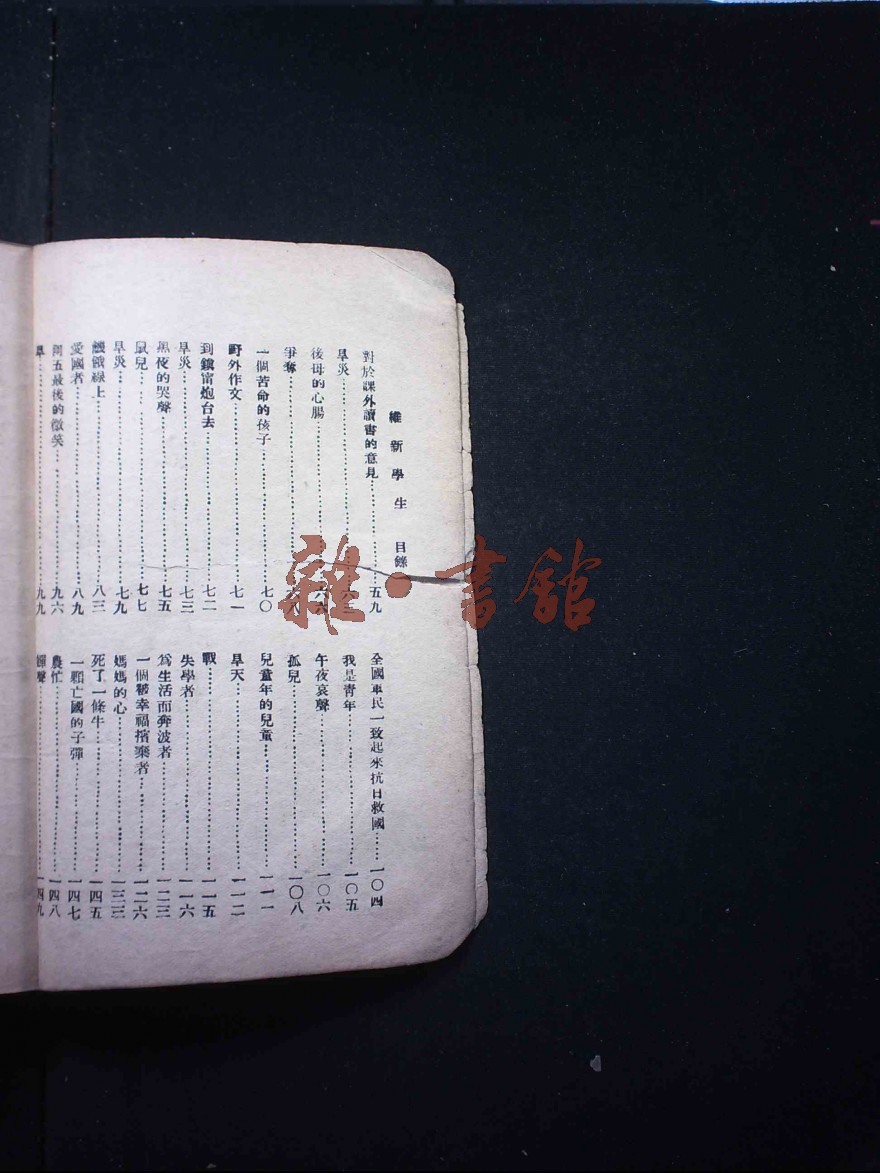 維新學生 目錄
對於課外讀書的意見……五九
旱災……
後母的心腸……
爭奪……
一個苦命的孩子……七〇
野外作文……七一
到鎮甯炮台去……七二
旱災……七三
黑夜的哭聲……七五
鼠兒……七七
旱災……七九
饑餓線上……八三
愛國者……八九
阿五最後的微笑……九六
旱……九九
全國軍民一致起來抗日救國……一〇四
我是青年……一〇五
午夜哀聲……一〇六
孤兒……一〇八
兒童年的兒童……一一一
旱天……一一二
戰……一一五
失學者……一一六
為生活而奔波者……一二三
一個被幸福擯棄者……一二六
媽媽的心……一三三
死了一條牛……一四五
一顆亡國的子彈……一四七
農忙……一四八
歸聲……一四九
雜·書館